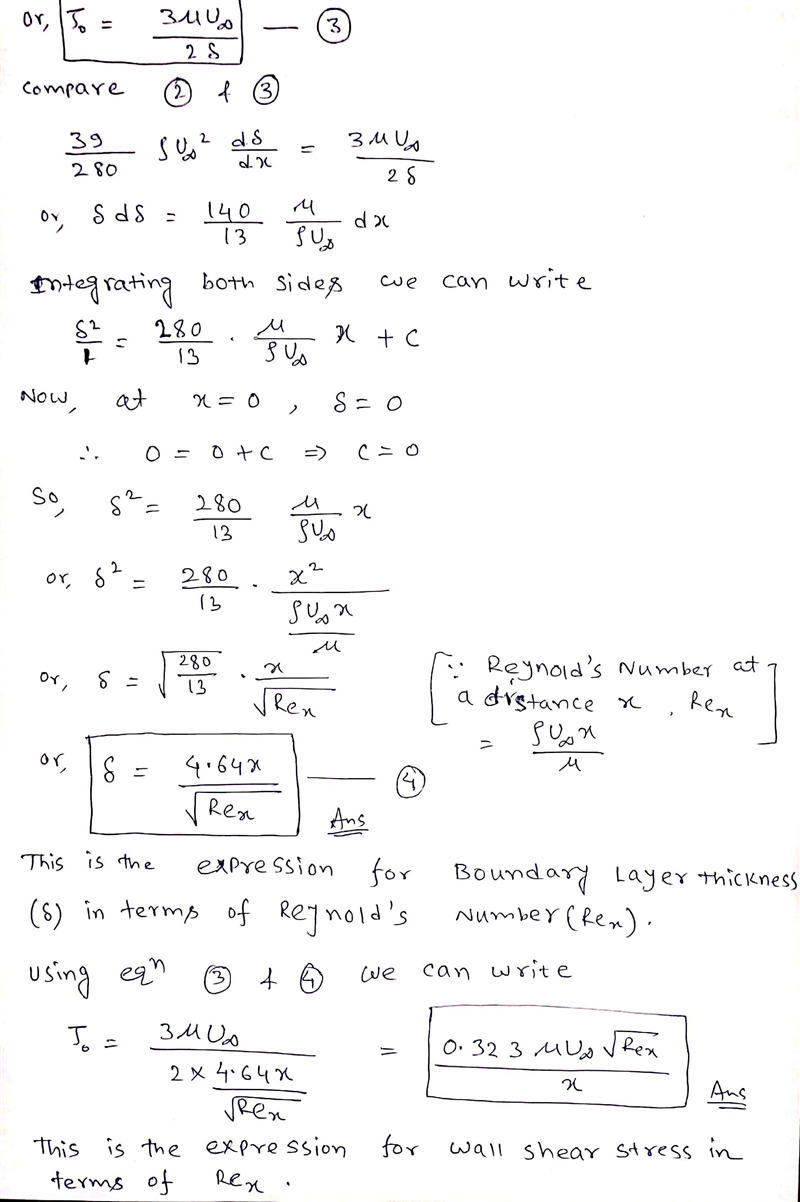 or, τ₀ = 3μU∞ / 2δ — ③
compare ② & ③
39/280 ρU∞² dδ/dx = 3μU∞ / 2δ
or, δ dδ = 140/13 μ/ρU∞ dx
Integrating both sides we can write
δ²/1 = 280/13 . μ/ρU∞ x + C
Now, at x = 0 , δ = 0
∴ 0 = 0 + C ⇒ C = 0
So, δ² = 280/13 μ/ρU∞ x
or, δ² = 280/13 . x² / (ρU∞x/μ)
or, δ = √(280/13) . x/√Rex
[∵ Reynold's Number at
a distance x , Rex
= ρU∞x/μ]
or, δ = 4.64x/√Rex — ④
Ans
This is the expression for Boundary Layer thickness
(δ) in terms of Reynold's Number (Rex).
using eqn ③ & ④ we can write
τ₀ = 3μU∞ / (2 × 4.64x/√Rex) = 0.323 μU∞ √Rex / x
Ans
This is the expression for wall shear stress in
terms of Rex .